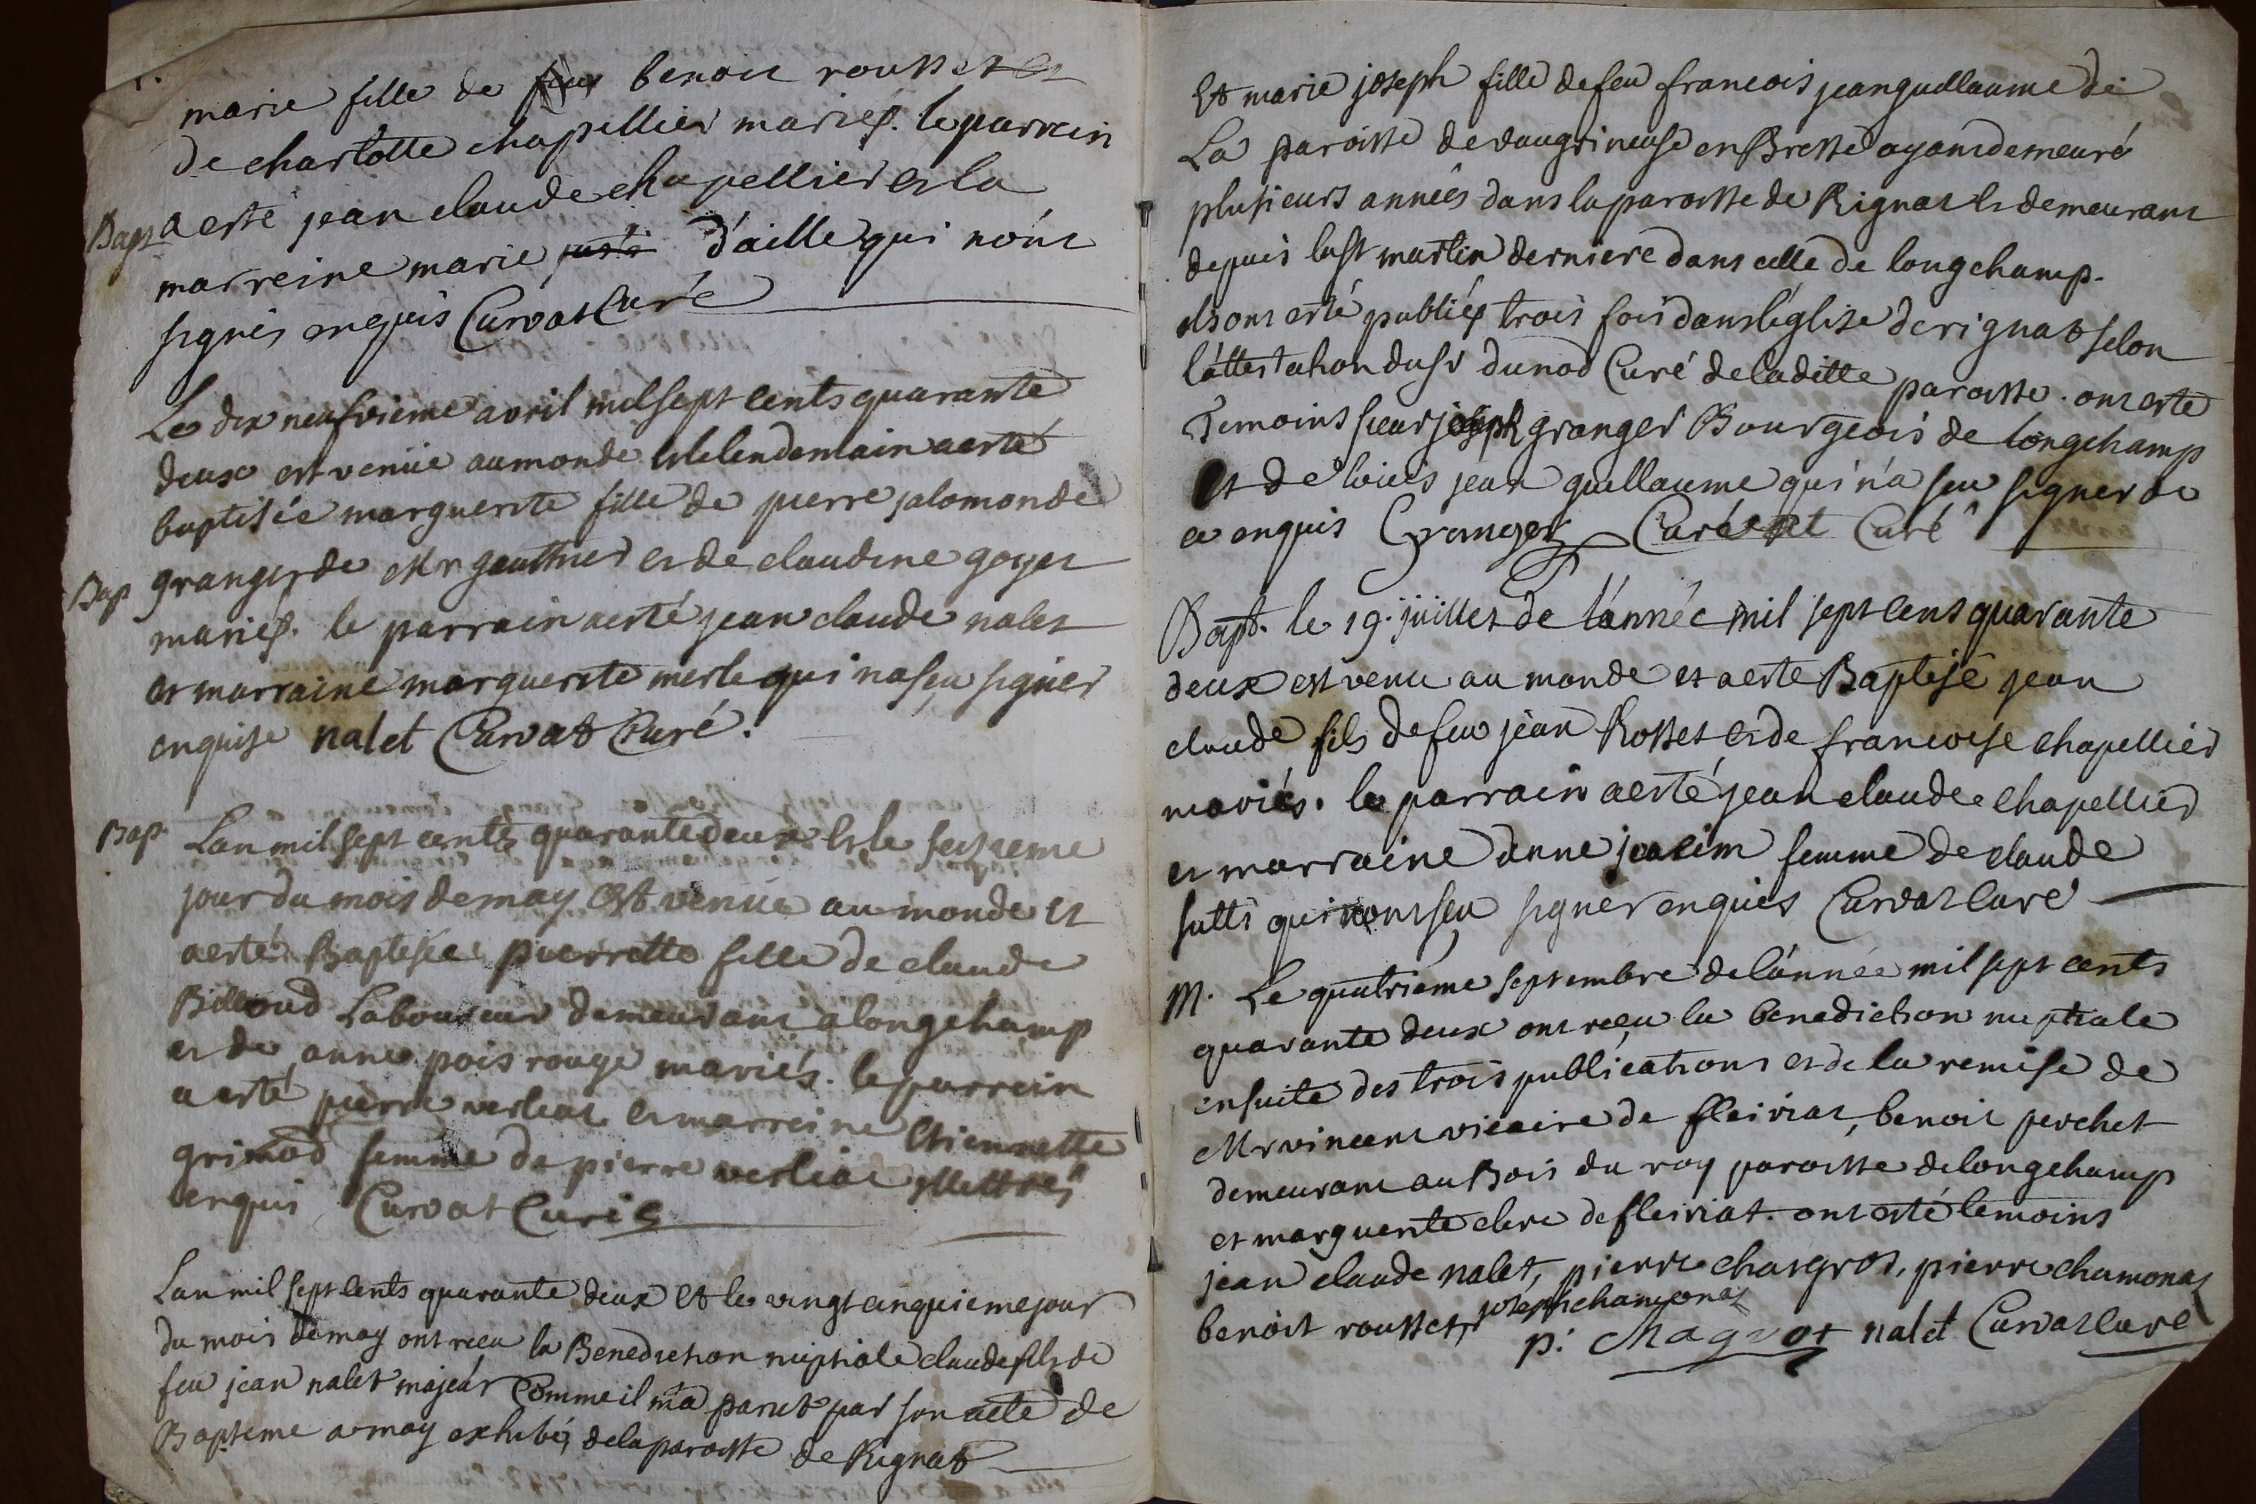 marie fille de feu benoit rousset et
de charlotte chapellier mariés. le parrein
Bapt a esté jean claude chapellier et la
marreine marie d'aille qui nónt
signés enquis Curvat Curé
Le dix neufvieme avril mil sept cents quarante
deux est venüe au monde et le lendemain a esté
baptisée marguerite fille de pierre jalomonde
Bap granger de Mr gauthier et de claudine goyet
mariés. le parrain a esté jean claude nalet
et marraine marguerite merle qui na sçu signer
enquise nalet Curvat Curé.
Bap. Lan mil sept cents quarante deux et le seizieme
jour du mois de may est venüe au monde et
a esté Baptisée pierrette fille de claude
Billoud Laboureur demeurant a longchamp
et de anne pois rouge mariés. le parrein
a esté pierre verliat et marreine Etiennette
grimod femme de pierre verliat illettrés
enquis Curvat Curé
Lan mil sept cents quarante deux et le vingt cinquieme jour
du mois de may ont reçu la Benediction nuptiale claude fils de
feu jean nalet majeur Comme il m'a parut par son acte de
Bapteme a moy exhibé, de la paroisse de Rignat
Et marie joseph fille de feu francois jeanguillaume de
La paroisse de vaugrineuse en Bresse ayant demeuré
plusieurs années dans la paroisse de Rignat et demeurant
depuis la st martin derniere dans celle de longchamp.
ils ont esté publiés trois fois dans léglise de rignat selon
láttestation du sr dunod Curé de laditte paroisse. ont esté
Temoins sieur joseph granger Bourgeois de longchamp
et de loüis jean guillaume qui n'a sçu signer de
ce enquis Granger Curvat Curé
Bapt. le 19. juillet de lánnée mil sept cent quarante
deux est venu au monde et a esté Baptisé jean
claude fils de feu jean Rosset et de francoise chapellier
mariés. le parrain a esté jean claude chapellier
et marraine anne femme de claude
sutti qui nont sçu signer enquis Curvat Curé
M. Le quatrieme septembre de lánnée mil sept cents
quarante deux ont reçu la benediction nuptiale
ensuite des trois publications et de la remise de
Mr vincent vicaire de fleiriat, benoit perchet
demeurant au Bois du roy paroisse de longchamp
et marguerite clerc de fleiriat. ont esté temoins
jean claude nalet, pierre chatgros, pierre chamonat
benoit rousset, joseph chamonat
p: Magnot nalet Curvat Curé